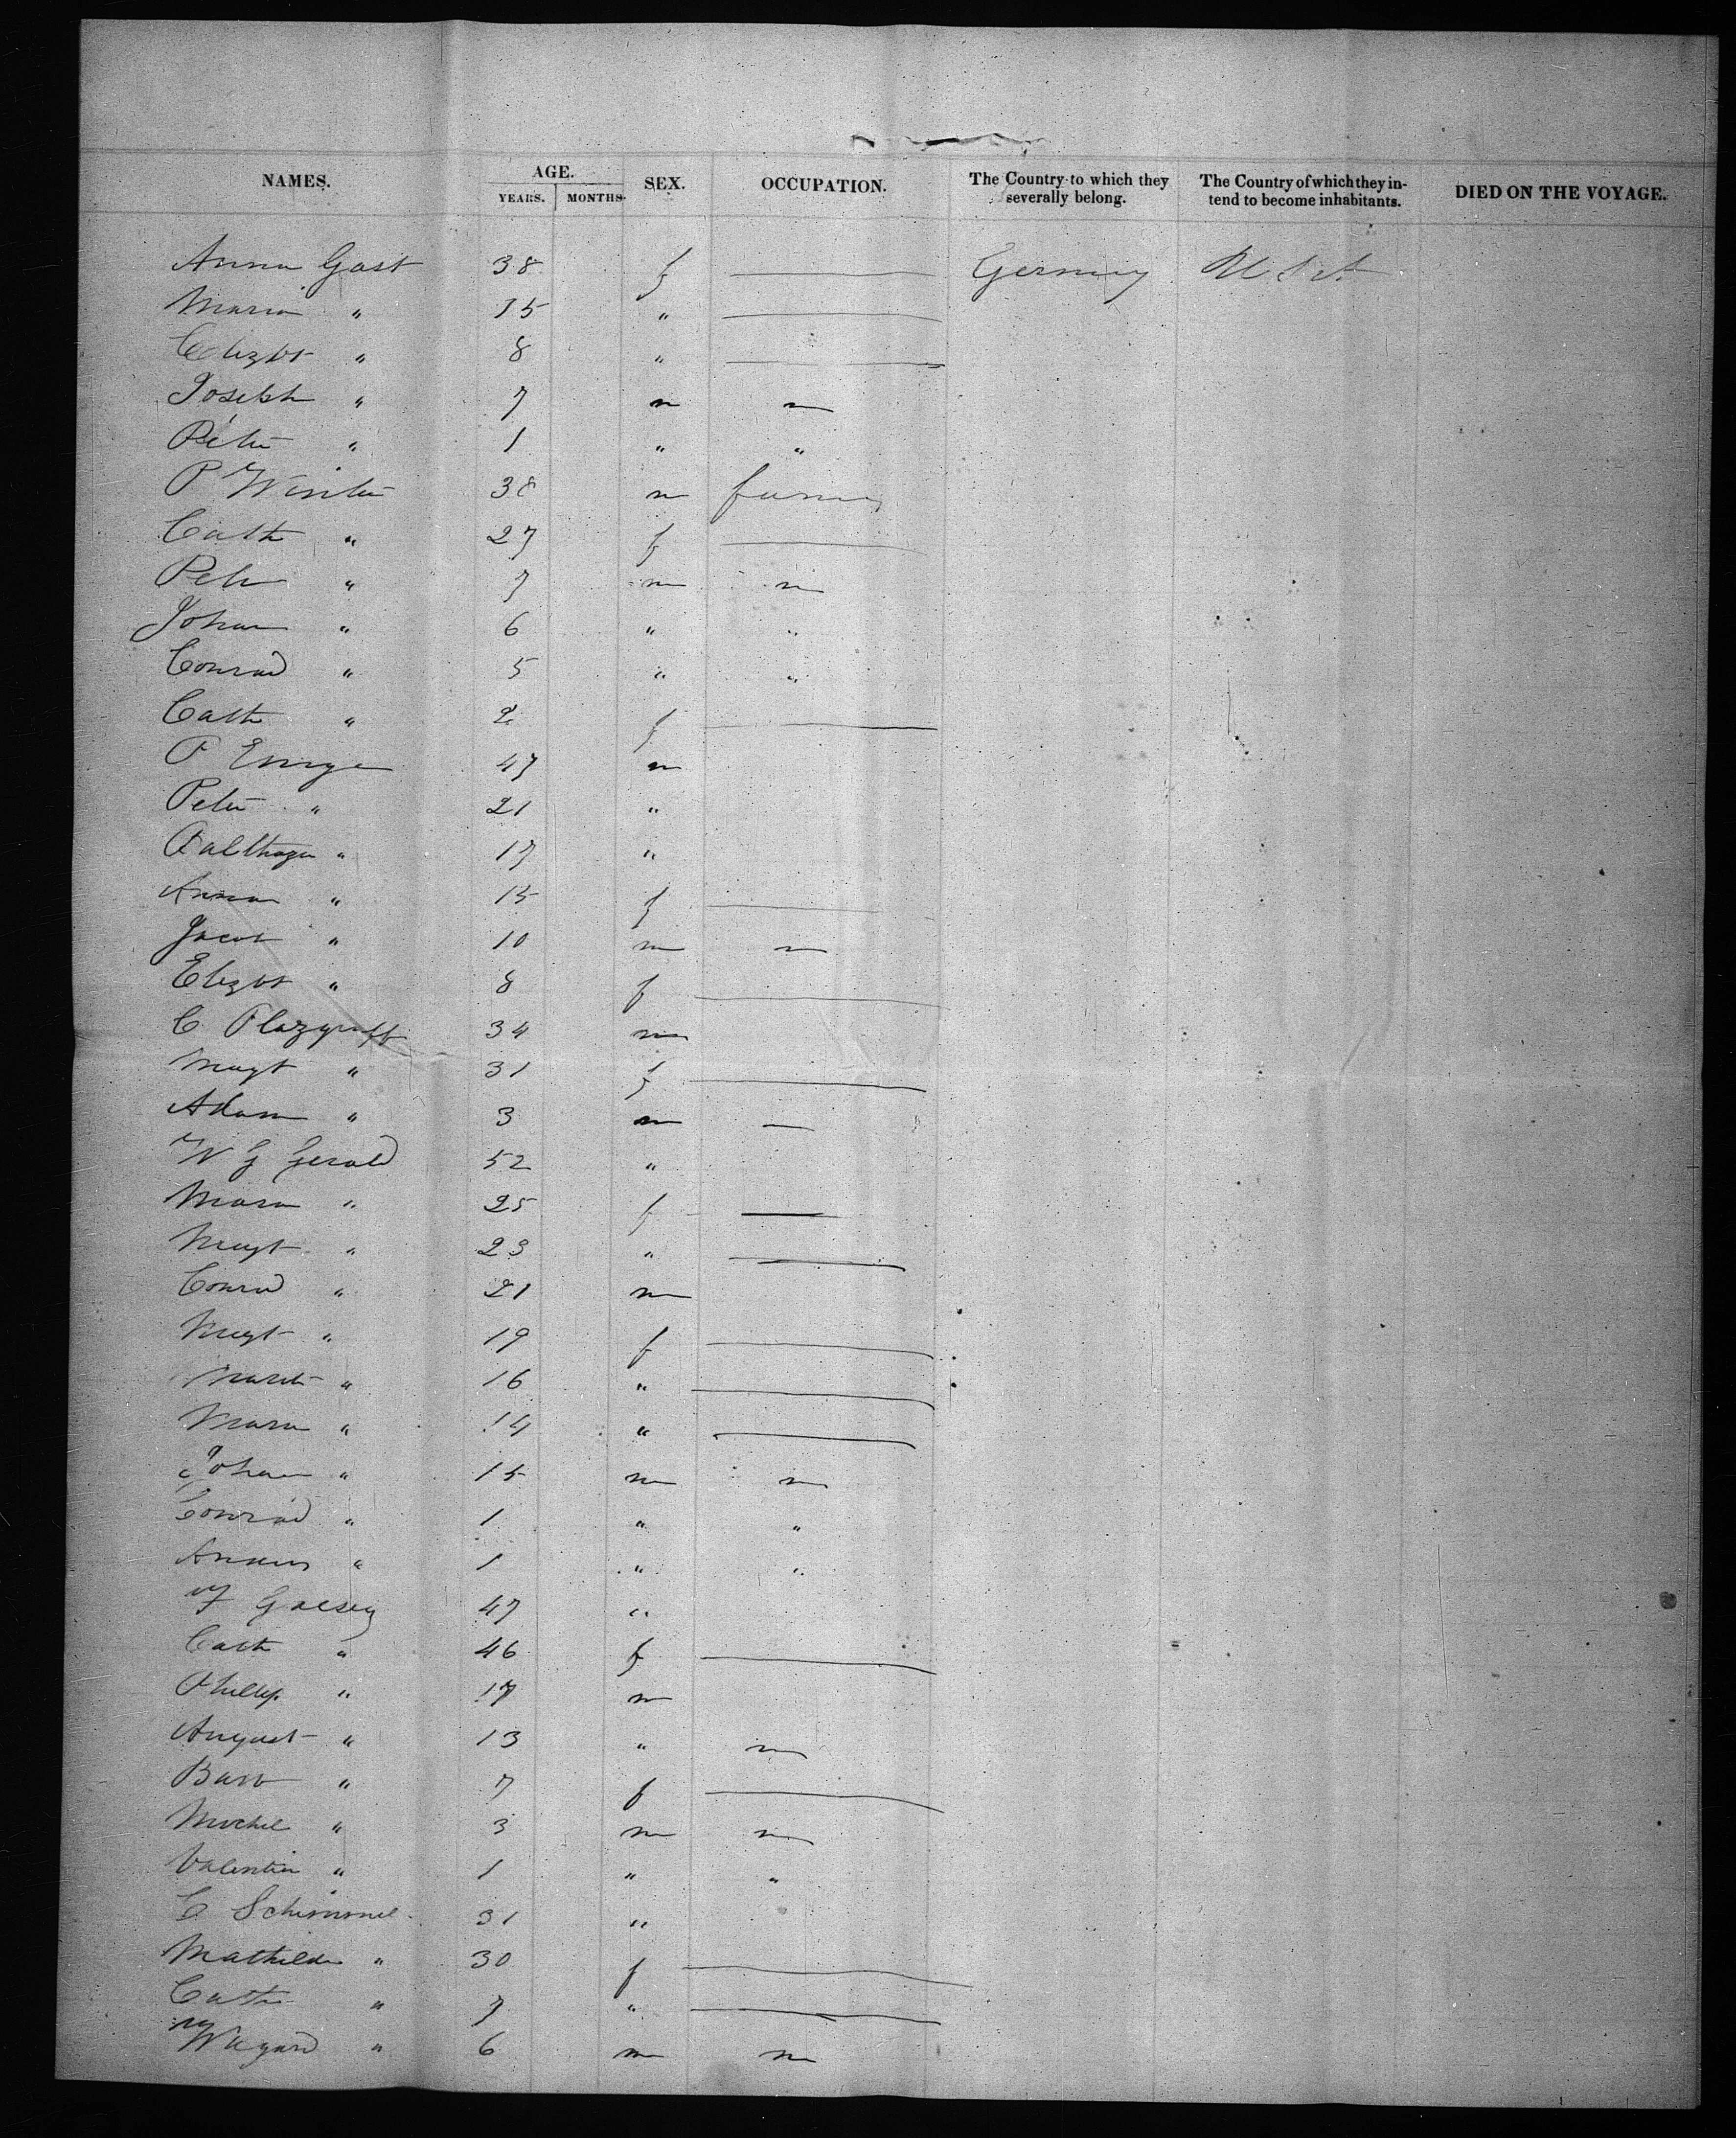 NAMES. AGE. SEX. OCCUPATION. The Country to which they severally belong. The Country of which they intend to become inhabitants. DIED ON THE VOYAGE.
YEARS. MONTHS.
Anna Gast 38 f — Germany U St
Maria " 15 " —
Elizbt " 8 " —
Joseph " 7 m
Peter " 1 " "
P Winter 38 m farmer
Cath " 27 f —
Peter " 7 m
Johan " 6 " "
Conrad " 5 " "
Cath " 2 f —
P 47 m
Peter " 21 "
Balthazer " 17 "
Anna " 15 f —
Jacob " 10 m
Elizbt " 8 f —
C 34 m
Magt " 31 f —
Adam " 3 m —
W G Gerold 52 "
Maria " 25 f —
Magt " 23 " —
Conrad " 21 m
Magt " 19 f —
" 16 " —
Maria " 14 " —
Johan " 15 m
Conrad " 1 " "
" 1 " "
47 "
Cath " 46 f —
Phillip " 17 m
August " 13 "
Barb " 7 f —
Michel " 3 m
Valentin " 1 " "
C Schimmel 31 "
Mathilde " 30 f —
Cath " 7 " —
" 6 m